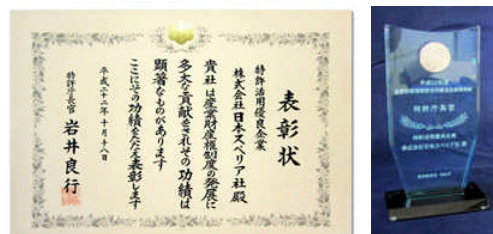 表彰状
特許活用優良企業
株式会社日本スペリア社殿
貴社は産業財産権制度の発展に
多大な貢献をされその功績は
顕著なものがあります
ここにその功績をたたえ表彰します
平成二十二年十月十八日
特許庁長官 岩井良行
特許庁長官